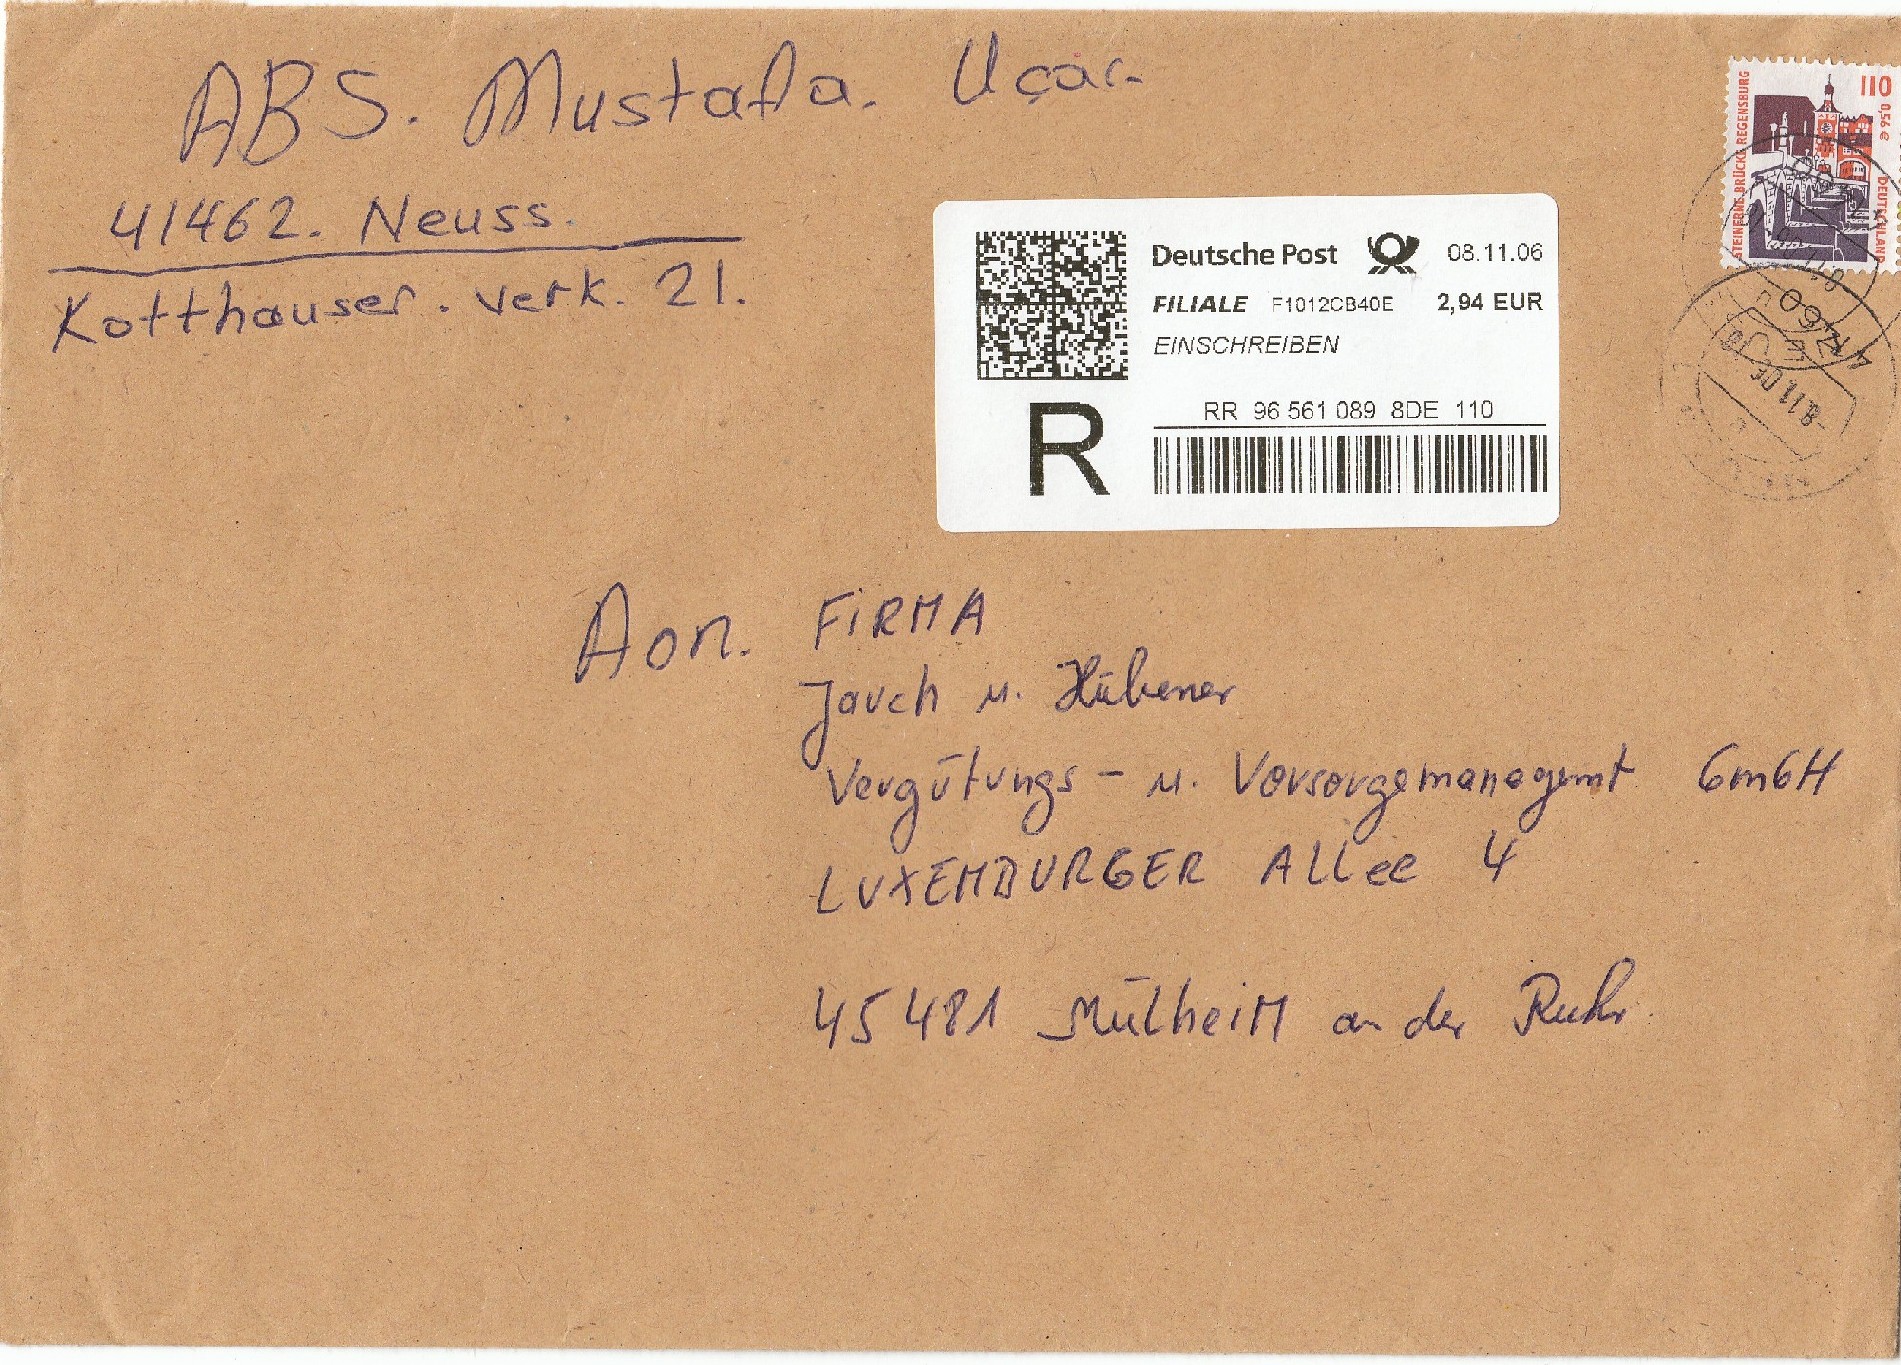 ABS. Mustafa. Uçar.
41462. Neuss.
Kotthauser. verk. 21.
STEINERNE BRÜCKE REGENSBURG
110
0,56 €
DEUTSCHLAND
Deutsche Post 08.11.06
FILIALE F1012CB40E 2,94 EUR
EINSCHREIBEN
RR 96 561 089 8DE 110
R
Aon. FiRMA
Jauch u. Hübener
Vergütungs- u. Vorsorgemanagemt GmbH
LUXEMBURGER ALLee 4
45481 MülheiM an der Ruhr